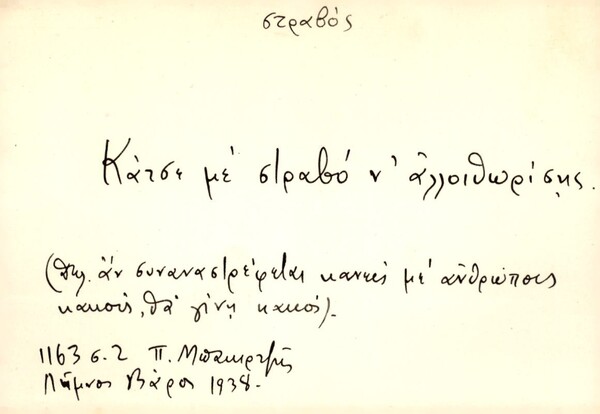 στραβός
Κάτσε μέ στραβό ν' ἀλλοιθωρίσης.
(δηλ. ἄν συναναστρέφεται κανείς μέ ἀνθρώπους
κακούς, θά γίνη κακός).
1163 σ. 2 Π. Μπακιρτζῆς
Λῆμνος Βάρος 1938.